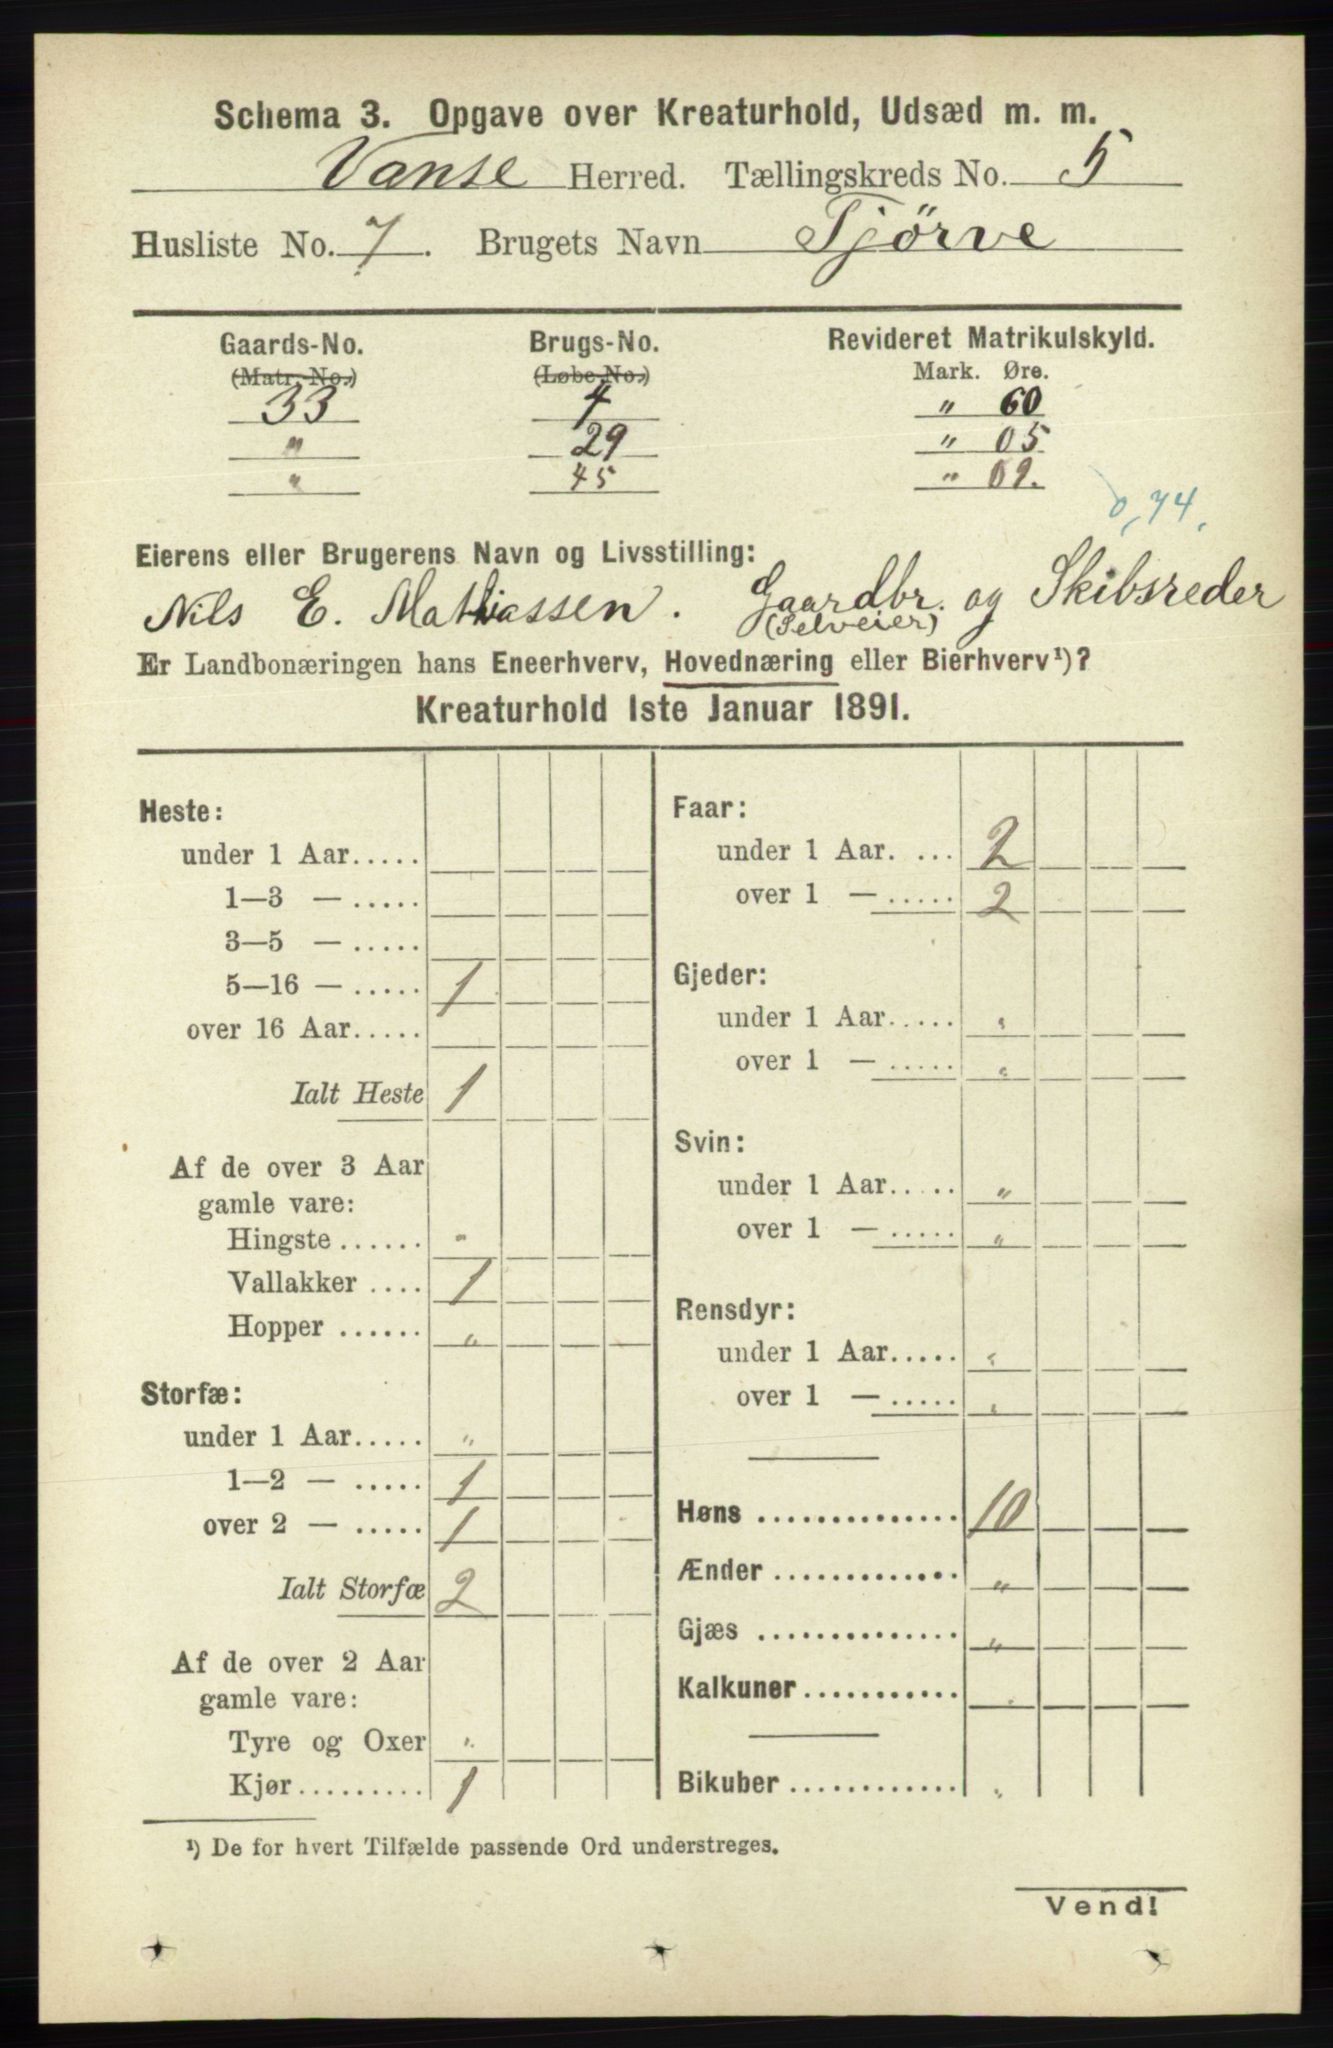 Schema 3. Opgave over Kreaturhold, Udsæd m. m.
Vanse Herred. Tællingskreds No. 5
Husliste No. 7. Brugets Navn Tjörve
Gaards-No. Brugs-No. Revideret Matrikulskyld.
(Matr.-No.) (Løbe-No.) Mark. Øre.
33 4 " 60
" 29 " 05
" 45 " 09.
0,74.
Eierens eller Brugerens Navn og Livsstilling:
Nils E. Mathiassen. Gaardbr. og Skibsreder
(Selveier)
Er Landbonæringen hans Eneerhverv, Hovednæring eller Bierhverv¹)?
Kreaturhold 1ste Januar 1891.
Heste:
under 1 Aar.....
1—3 — .....
3—5 — .....
5—16 — ..... 1
over 16 Aar.....
Ialt Heste 1
Af de over 3 Aar
gamle vare:
Hingste ...... "
Vallakker .... 1
Hopper ...... "
Storfæ:
under 1 Aar..... "
1—2 — ..... 1
over 2 — ..... 1
Ialt Storfæ 2
Af de over 2 Aar
gamle vare:
Tyre og Oxer "
Kjør......... 1
Faar:
under 1 Aar. ... 2
over 1 — ..... 2
Gjeder:
under 1 Aar..... "
over 1 — ..... "
Svin:
under 1 Aar..... "
over 1 — ..... "
Rensdyr:
under 1 Aar..... "
over 1 — ..... "
Høns .............. 10
Ænder ............. "
Gjæs .............. "
Kalkuner........... "
Bikuber ............ "
¹) De for hvert Tilfælde passende Ord understreges.
Vend!